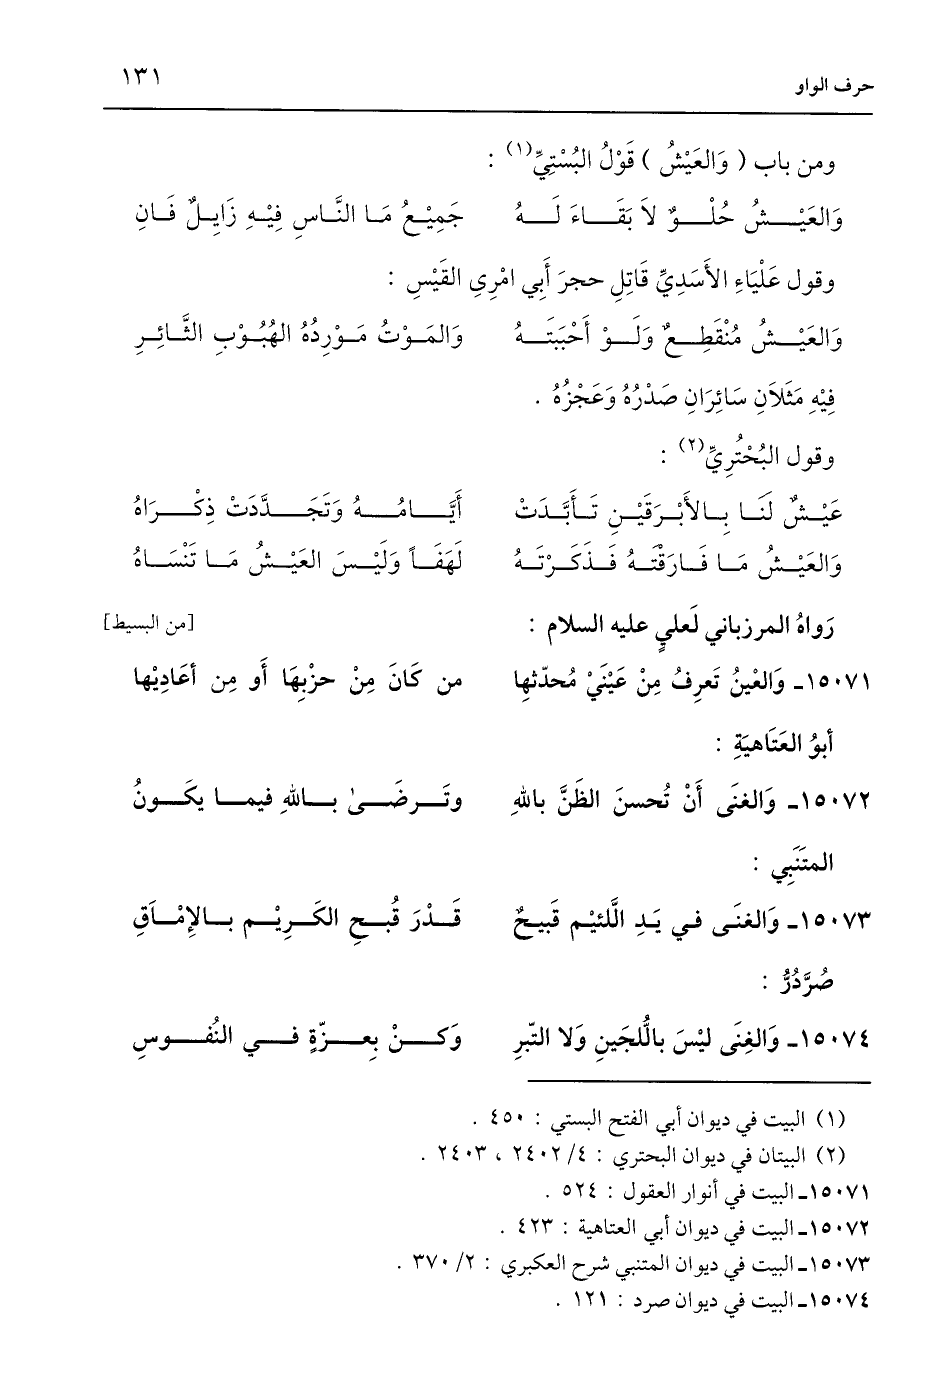 حرف الواو ١٣١
ومن باب ( وَالعَيْشُ ) قَوْلُ البُسْتِيِّ(١) :
وَالعَيْـــشُ حُلْـــوٌ لاَ بَقَـــاءَ لَـــهُ جَمِيْـعُ مَـا النَّـاسِ فِيْـهِ زَايِـلٌ فَـانِ
وقول عَلْيَاءِ الأَسَدِيِّ قَاتِلِ حجرَ أَبِي امْرِي القَيْسِ :
وَالعَيْـــشُ مُنْقَطِـــعٌ وَلَـــوْ أَحْبَبْتَـــهُ وَالمَـوْتُ مَـوْرِدُهُ الهُبُـوْبِ الثَّـائِـرِ
فِيْهِ مَثَلاَنِ سَائِرَانِ صَدْرُهُ وَعَجْزُهُ .
وقول البُحْتُرِيِّ(٢) :
عَيْـــشٌ لَنَـــا بِـالأَبْـرَقَيْـــنِ تَـأَبَّـدَتْ أَيَّـــامُـــهُ وَتَجَـــدَّدَتْ ذِكْـــرَاهُ
وَالعَيْـــشُ مَـــا فَـارَقْتَـــهُ فَـذَكَـرْتَـهُ لَهَفَـاً وَلَيْـسَ العَيْـشُ مَـا تَنْسَـاهُ
رَواهُ المرزباني لَعليٍ عليه السلام : [من البسيط]
١٥٠٧١ـ وَالعْينُ تَعرِفُ مِنْ عَيْنَيْ مُحدّثها من كَانَ مِنْ حزْبِهَا أَو مِن أعَادِيْها
أبوُ العَتَاهيَةِ :
١٥٠٧٢ـ وَالغنَى أَنْ تُحسنَ الظَنَّ باللهِ وتَـــرضَـــىٰ بـــاللهِ فيمـــا يكَـــونُ
المتَنَبِي :
١٥٠٧٣ـ وَالغنَـى فـي يَـدِ الَّلئيْـم قَبيحٌ قَـــدْرَ قُبـحِ الكَـرِيْـم بـالإِمْـلَاقِ
صُرَّدُرُّ :
١٥٠٧٤ـ وَالغِنَى ليْسَ بالُّلجَينِ وَلا التّبرِ وَكـــنْ بِعـــزّةٍ فـــي النُفُـــوسِ
(١) البيت في ديوان أبي الفتح البستي : ٤٥٠ .
(٢) البيتان في ديوان البحتري : ٤/ ٢٤٠٢ ، ٢٤٠٣ .
١٥٠٧١ـ البيت في أنوار العقول : ٥٢٤ .
١٥٠٧٢ـ البيت في ديوان أبي العتاهية : ٤٢٣ .
١٥٠٧٣ـ البيت في ديوان المتنبي شرح العكبري : ٢/ ٣٧٠ .
١٥٠٧٤ـ البيت في ديوان صرد : ١٢١ .